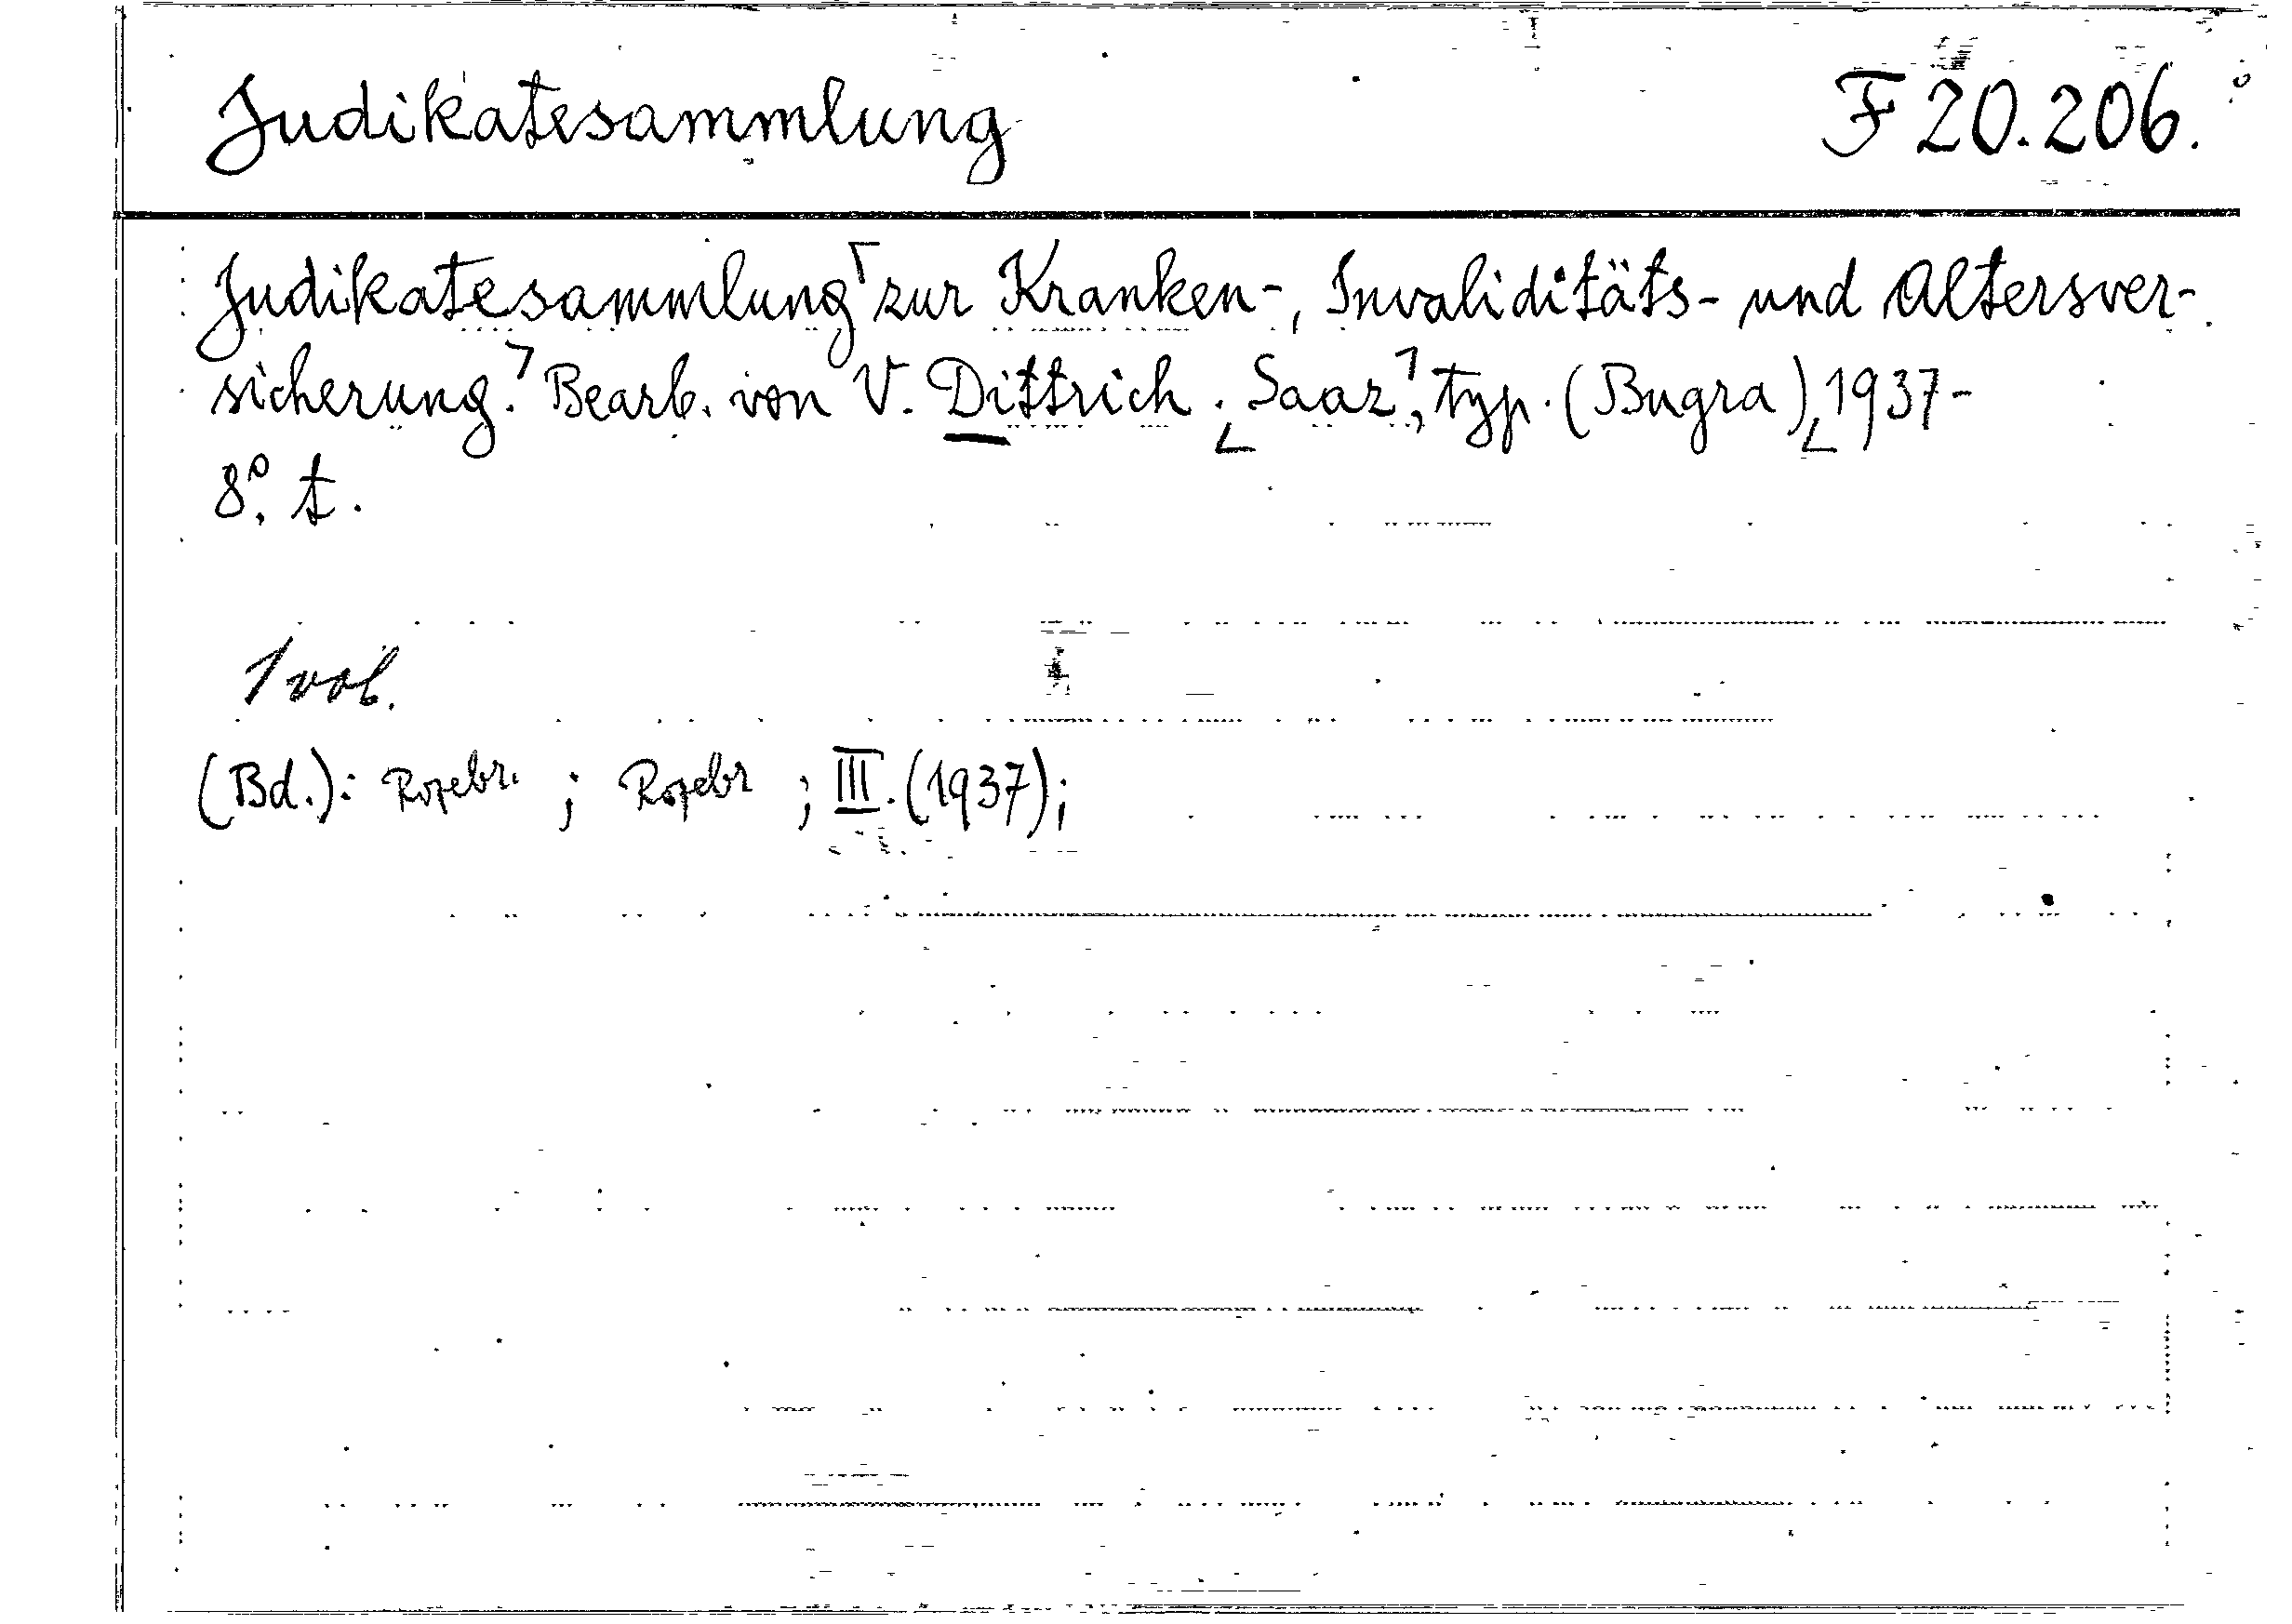 Judikatesammlung F 20.206.
Judikatesammlung ⌈zur Kranken-, Invaliditäts- und Altersver-
sicherung.⌉ Bearb. von V. Dittrich. ⌊Saaz⌉, typ. (Bugra)⌊, 1937-
8°, t.
1 vol.
(Bd.): ; ; III. (1937);